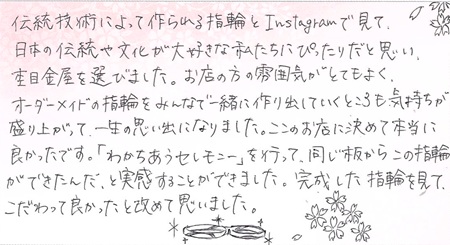 伝統技術によって作られる指輪とInstagramで見て、
日本の伝統や文化が大好きな私たちにぴったりだと思い、
杢目金屋を選びました。お店の方の雰囲気がとてもよく、
オーダーメイドの指輪をみんなで一緒に作り出していくところも気持ちが
盛り上がって、一生の思い出になりました。ここのお店に決めて本当に
良かったです。「わかちあうセレモニー」を行って、同じ板からこの指輪
ができたんだ、と実感することができました。完成した指輪を見て、
こだわって良かったと改めて思いました。